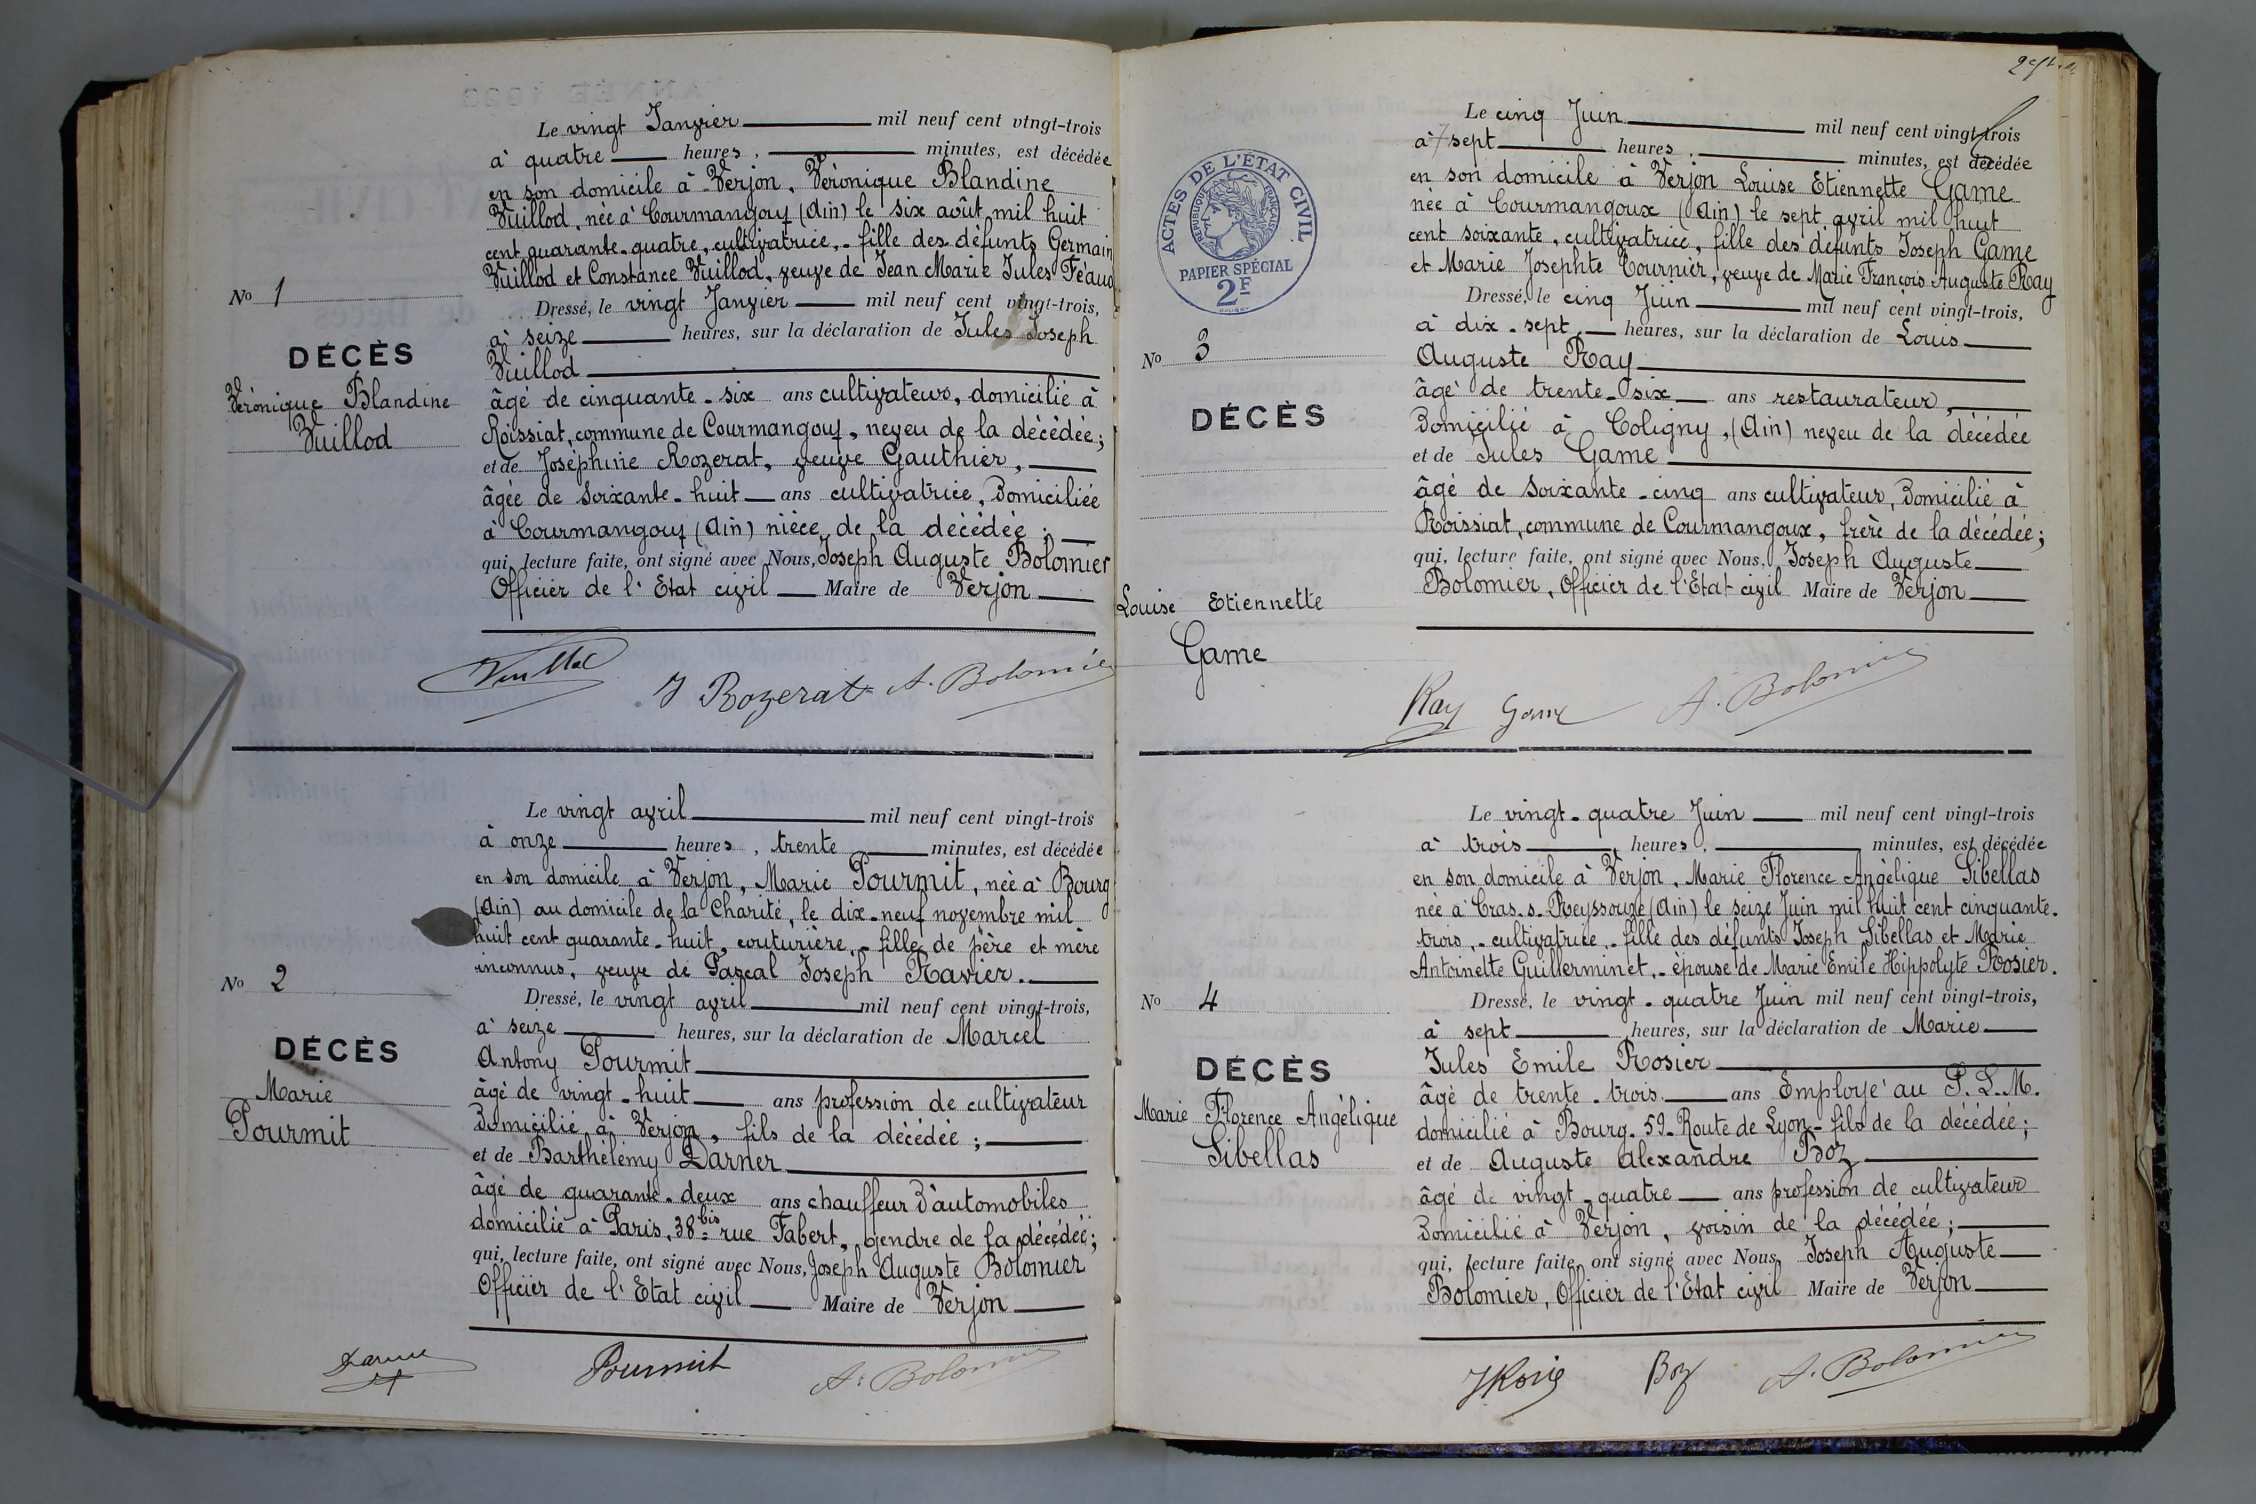 Le vingt Janvier mil neuf cent vingt-trois
à quatre heures, minutes, est décédée
en son domicile à Verjon, Véronique Blandine
Vuillod, née à Courmangoux (Ain) le six août mil huit
cent quarante-quatre, cultivatrice, - fille des défunts Germain
Vuillod et Constance Vuillod, veuve de Jean Marie Jules Féaud
No 1
DÉCÈS
Véronique Blandine
Vuillod
Dressé, le vingt Janvier mil neuf cent vingt-trois,
à seize heures, sur la déclaration de Jules Joseph
Vuillod
âgé de cinquante-six ans cultivateur, domicilié à
Roissiat, commune de Courmangoux, neveu de la décédée;
et de Joséphine Rozerat, veuve Gauthier,
âgée de soixante-huit ans cultivatrice, Domiciliée
à Courmangoux (Ain) nièce de la décédée;
qui, lecture faite, ont signé avec Nous, Joseph Auguste Bolomier
Officier de l'Etat civil Maire de Verjon
J Rozerat A. Bolomier
Le vingt avril mil neuf cent vingt-trois
à onze heures, trente minutes, est décédée
en son domicile à Verjon, Marie Pourmit, née à Bourg
(Ain) au domicile de la Charité, le dix-neuf novembre mil
huit cent quarante-huit, couturière, - fille de père et mère
inconnus, veuve de Pascal Joseph Ravier.
No 2
DÉCÈS
Marie
Pourmit
Dressé, le vingt avril mil neuf cent vingt-trois,
à seize heures, sur la déclaration de Marcel
Antony Pourmit
âgé de vingt-huit ans profession de cultivateur
Domicilié à Verjon, fils de la décédée;
et de Barthélemy Darner
âgé de quarante-deux ans chauffeur d'automobiles
domicilié à Paris, 38 bis rue Fabert, gendre de la décédée;
qui, lecture faite, ont signé avec Nous, Joseph Auguste Bolomier
Officier de l'Etat civil Maire de Verjon
Pourmit A. Bolomier
Le cinq Juin mil neuf cent vingt-trois
à sept heures, minutes, est décédée
en son domicile à Verjon Louise Etiennette Game
née à Courmangoux (Ain) le sept avril mil huit
cent soixante, cultivatrice, fille des défunts Joseph Game
et Marie Josephte Cournier, veuve de Marie François Auguste Ray
ACTES DE L'ÉTAT CIVIL
RÉPUBLIQUE FRANÇAISE
PAPIER SPÉCIAL
2F
No 3
DÉCÈS
Louise Etiennette
Game
Dressé, le cinq Juin mil neuf cent vingt-trois,
à dix-sept heures, sur la déclaration de Louis
Auguste Ray
âgé de trente-six ans restaurateur,
Domicilié à Coligny, (Ain) neveu de la décédée
et de Jules Game
âgé de soixante-cinq ans cultivateur, Domicilié à
Roissiat, commune de Courmangoux, frère de la décédée;
qui, lecture faite, ont signé avec Nous, Joseph Auguste
Bolomier, Officier de l'Etat civil Maire de Verjon
Ray Game A. Bolomier
Le vingt-quatre Juin mil neuf cent vingt-trois
à trois heures, minutes, est décédée
en son domicile à Verjon, Marie Florence Angélique Sibellas
née à Cras.s.Reyssouze (Ain) le seize Juin mil huit cent cinquante-
trois, - cultivatrice, - fille des défunts Joseph Sibellas et Marie
Antoinette Guillerminet, - épouse de Marie Emile Hippolyte Rosier.
No 4
DÉCÈS
Marie Florence Angélique
Sibellas
Dressé, le vingt-quatre Juin mil neuf cent vingt-trois,
à sept heures, sur la déclaration de Marie
Jules Emile Rosier
âgé de trente-trois ans Employé au P.L.M.
domicilié à Bourg-59-Route de Lyon-fils de la décédée;
et de Auguste Alexandre Boz
âgé de vingt-quatre ans profession de cultivateur
Domicilié à Verjon, voisin de la décédée;
qui, lecture faite, ont signé avec Nous, Joseph Auguste
Bolomier, Officier de l'Etat civil Maire de Verjon
Boz A. Bolomier